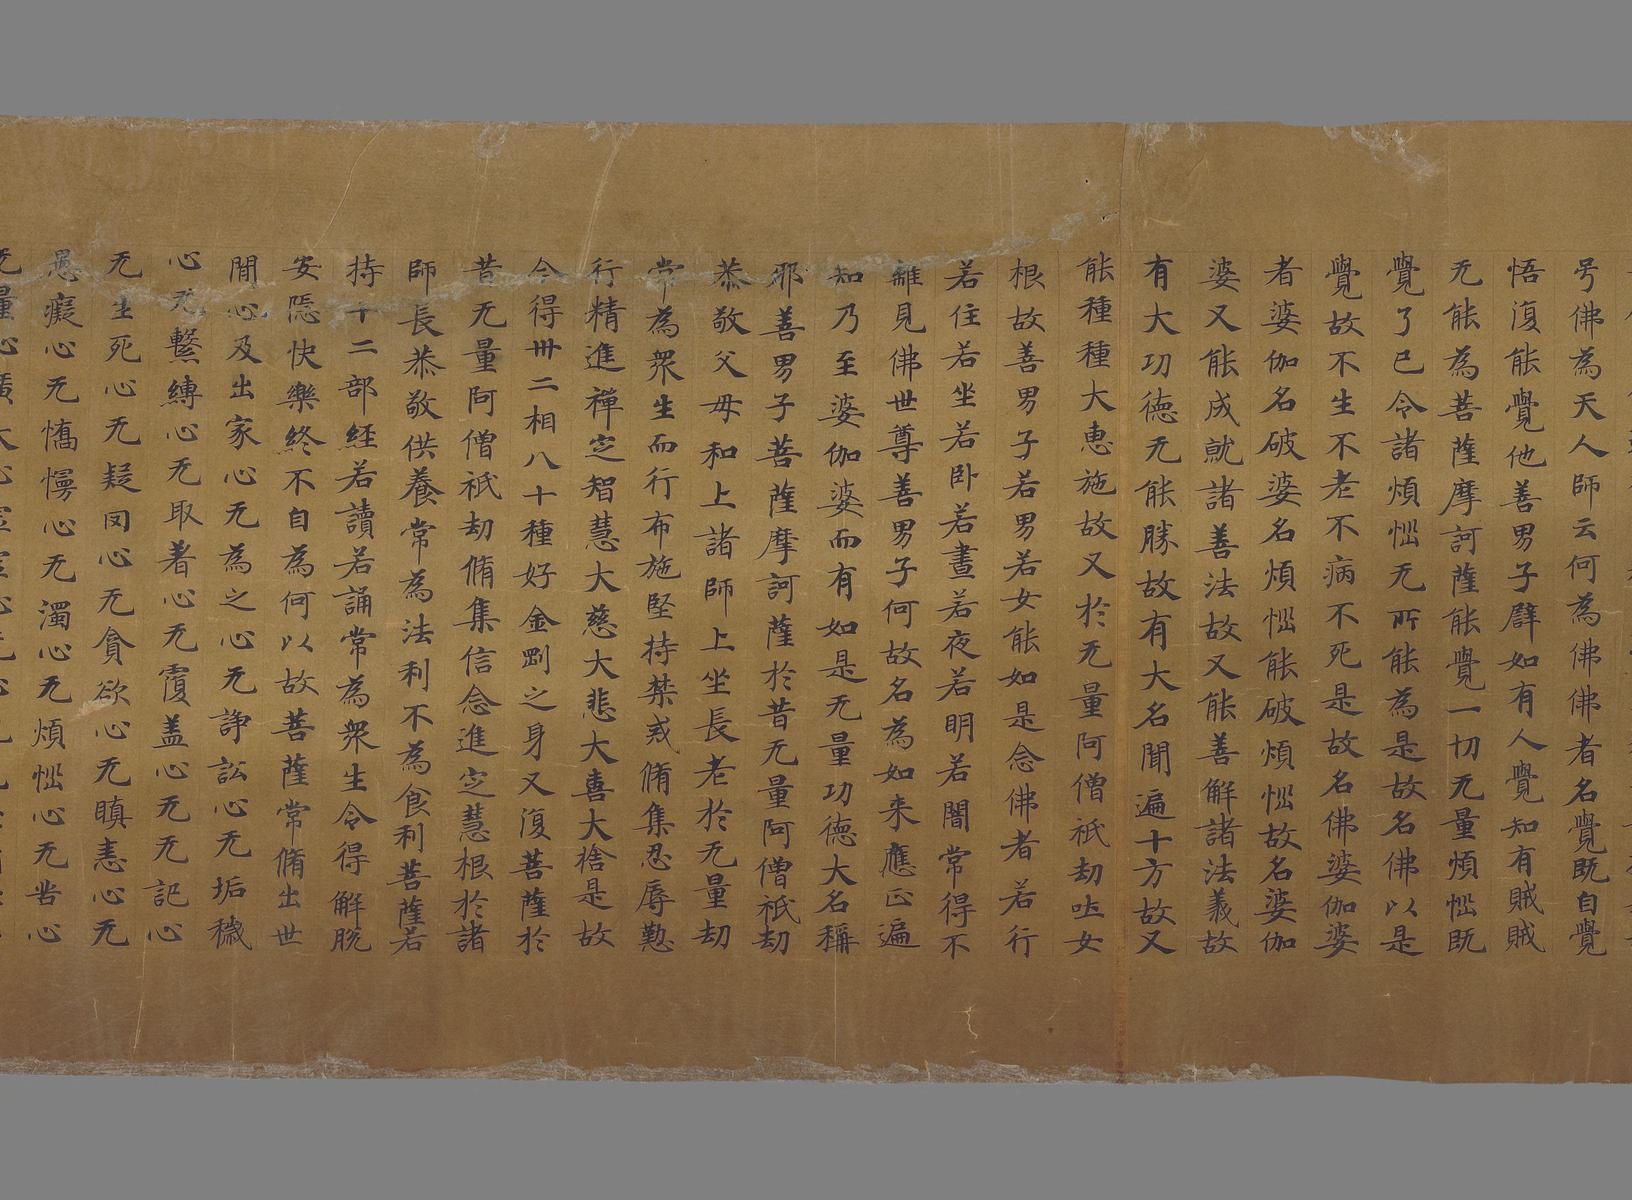 号佛為天人師云何為佛佛者名覺既自覺
悟復能覺他善男子譬如有人覺知有賊賊
无能為菩薩摩訶薩能覺一切无量煩惱既
覺了已令諸煩惱无所能為是故名佛以是
覺故不生不老不病不死是故名佛婆伽婆
者婆伽名破婆名煩惱能破煩惱故名婆伽
婆又能成就諸善法故又能善解諸法義故
有大功德无能勝故有大名聞遍十方故又
能種種大惠施故又於无量阿僧祇劫吐女
根故善男子若男若女能如是念佛者若行
若住若坐若卧若晝若夜若明若闇常得不
離見佛世尊善男子何故名為如来應正遍
知乃至婆伽婆而有如是无量功德大名稱
耶善男子菩薩摩訶薩於昔无量阿僧祇劫
恭敬父母和上諸師上坐長老於无量劫
常為衆生而行布施堅持禁戒脩集忍辱懃
行精進禪定智慧大慈大悲大喜大捨是故
今得卅二相八十種好金剛之身又復菩薩於
昔无量阿僧祇劫脩集信念進定慧根於諸
師長恭敬供養常為法利不為食利菩薩若
持十二部経若讀若誦常為衆生令得解脱
安隱快樂終不自為何以故菩薩常脩出世
閒心及出家心无為之心无諍訟心无垢穢
心无繫縛心无取著心无覆盖心无无記心
无生死心无疑罔心无貪欲心无瞋恚心无
愚癡心无憍慢心无濁心无煩惱心无苦心
无量心廣大心